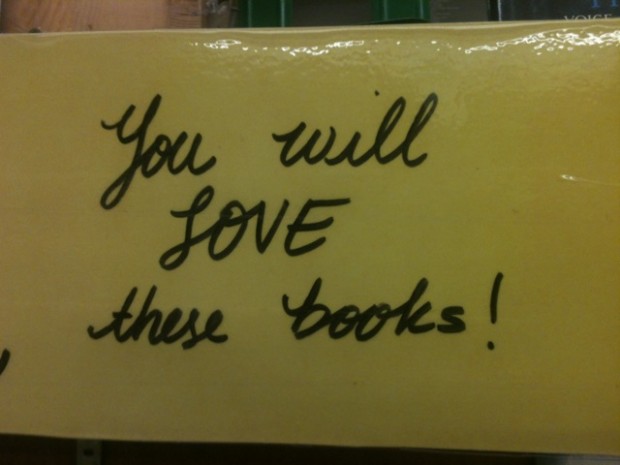 VOICE
You will
LOVE
these books!